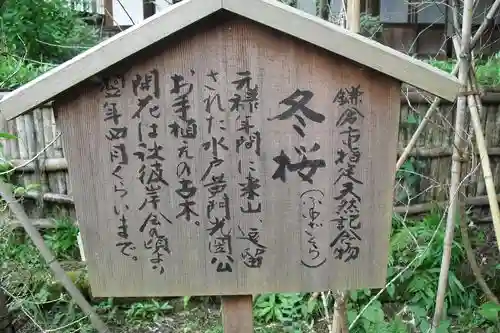 鎌倉市指定天然記念物
冬桜(ふゆざくら)
元禄年間に来山、逗留
された水戸黄門光圀公
お手植えの古木。
開花は秋彼岸会の頃より
翌年四月くらいまで。